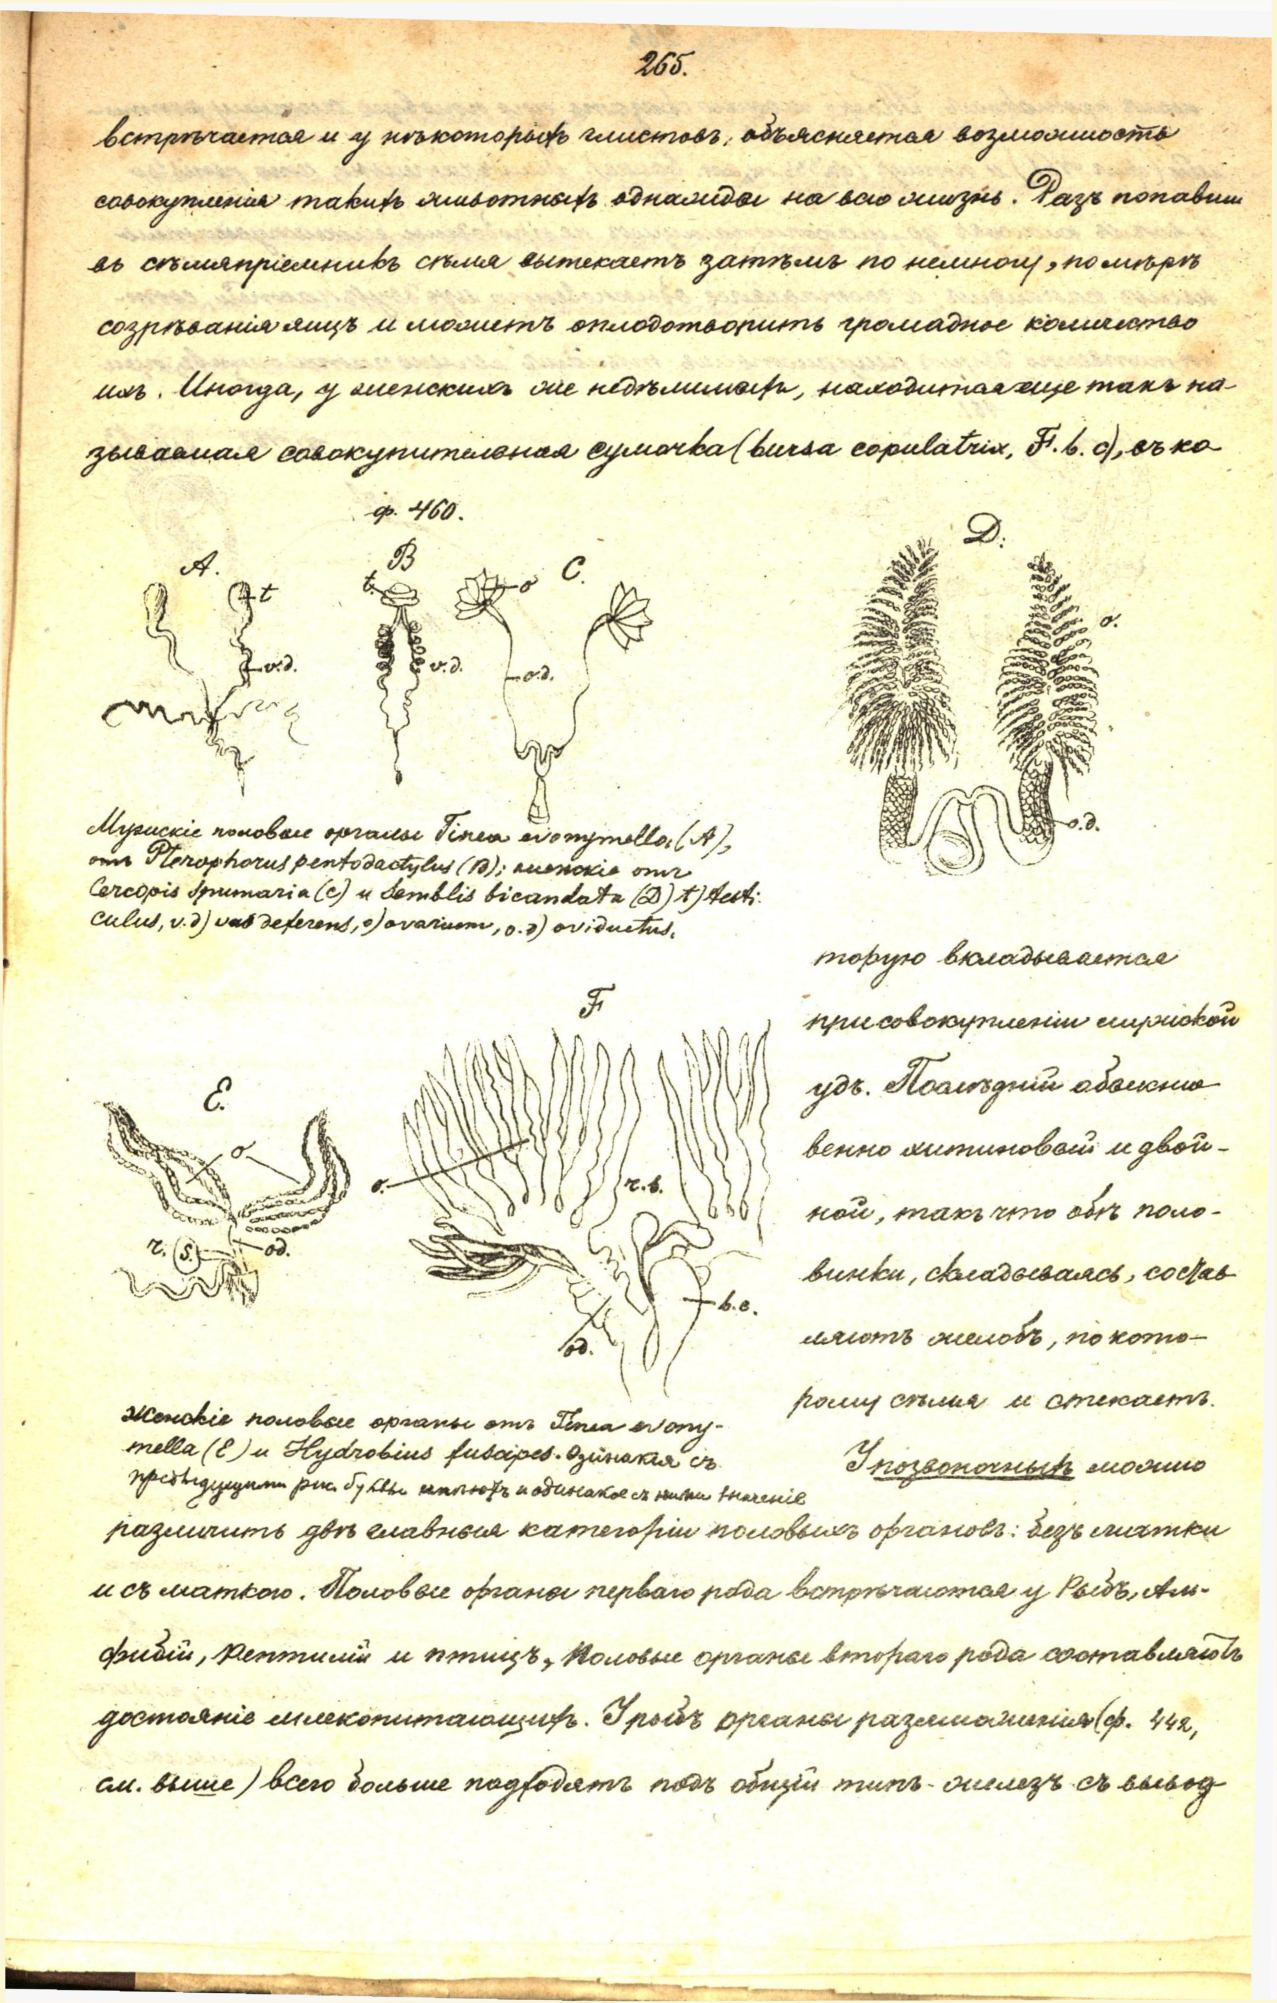 265.
встрѣчается и у нѣкоторыхъ глистовъ, объясняется возможность
совокупленія такихъ животныхъ однажды на всю жизнь. Разъ попавши
въ сѣмяпріемникъ сѣмя вытекаетъ затѣмъ по немногу, по мѣрѣ
созрѣванія яицъ и можетъ оплодотворить громадное количество
ихъ. Иногда, у женскихъ же недѣлимыхъ, находится еще такъ на-
зываемая совокупительная сумочка (bursa copulatrix, F. b. c), въ ко
ф. 460.
A. B C. D:
t t. o o.
v.d. v.d. o.d.
o.d.
Мужскіе половые органы Tinea evonymella, (A),
отъ Pterophorus pentodactylus (B); женскіе отъ
Cercopis spumaria (C) и Semblis bicaudata (D) t) testi-
culus, v.d) vas deferens, o) ovarium, o.d) oviductus.
торую вкладывается
при совокупленіи мужской
удъ. Послѣдній обыкно
венно хитиновый и двой-
ной, такъ что обѣ поло-
винки, складываясь, состав
ляютъ желобъ, по кото-
рому сѣмя и стекаетъ.
E. F
o o. r.s.
r. s. od.
b.c.
od.
Женскіе половые органы отъ Tinea evony-
mella (E) и Hydrobius fuscipes. Одинакія съ
предыдущими рис. буквы имѣютъ и одинакое съ ними значеніе
У позвоночныхъ можно
различить двѣ главныя категоріи половыхъ органовъ: безъ матки
и съ маткою. Половые органы перваго рода встрѣчаются у Рыбъ, Ам-
фибій, Рептилій и птицъ, Половые органы втораго рода составляютъ
достояніе млекопитающихъ. У рыбъ органы размноженія (ф. 442,
см. выше) всего больше подходятъ подъ общій типъ железъ съ вывод